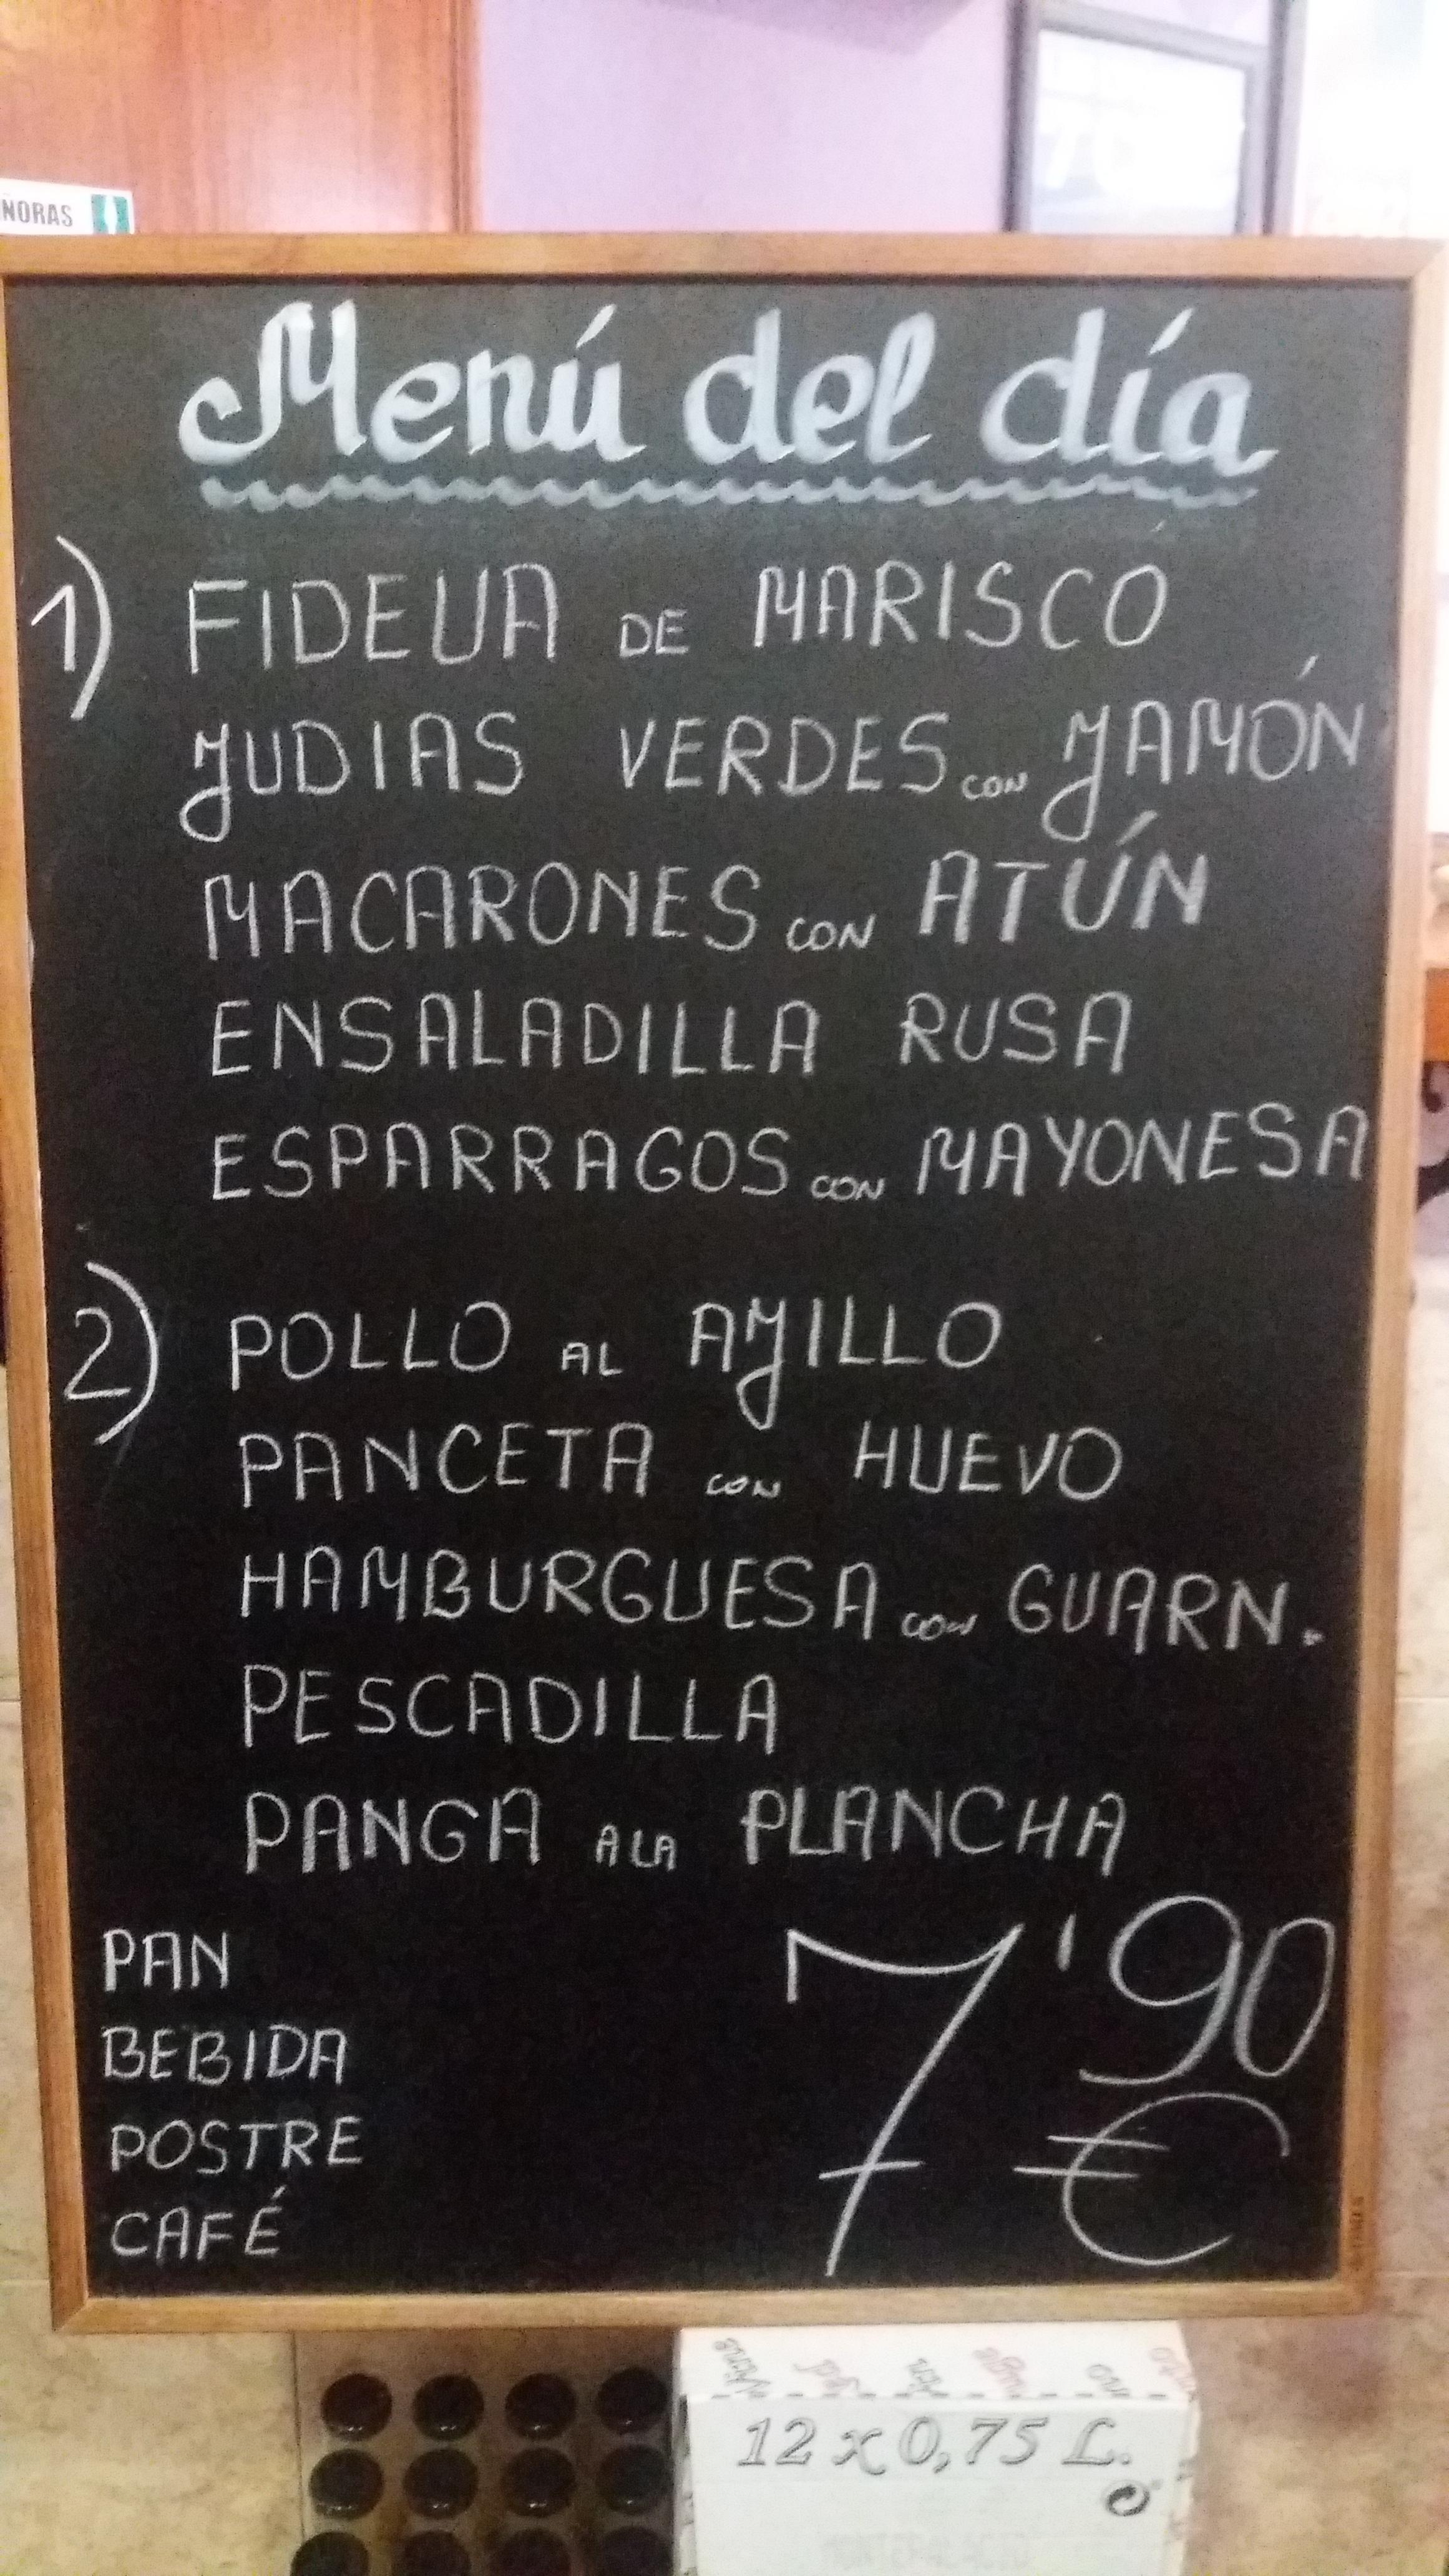 ÑORAS
Menú del día
1) FIDEUA DE MARISCO
JUDIAS VERDES CON JAMÓN
MACARONES CON ATÚN
ENSALADILLA RUSA
ESPARRAGOS CON MAYONESA
2) POLLO AL AJILLO
PANCETA CON HUEVO
HAMBURGUESA CON GUARN.
PESCADILLA
PANGA A LA PLANCHA
PAN
BEBIDA
POSTRE
CAFÉ
7'90
€
12 x 0,75 L.